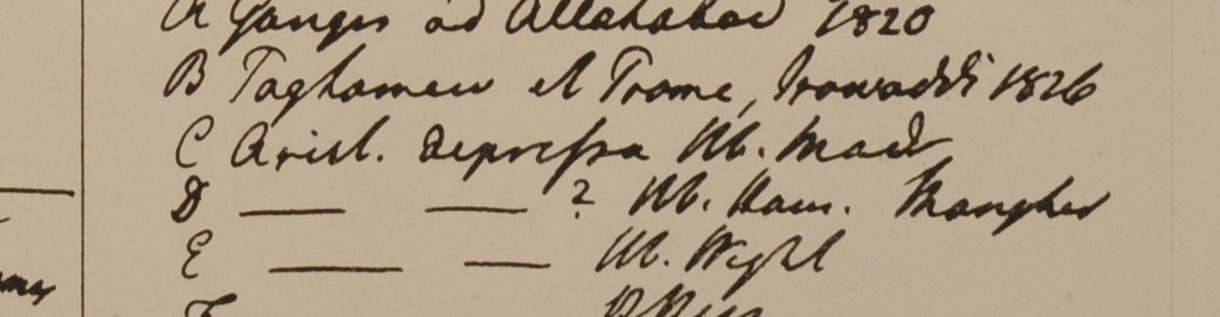 A Ganges ad Allahabad 1820
B Taghamew et Prome, Irawaddi 1826
C Arist. depressa Hb. Madr
D ——— ——— ? Hb. Ham. Monghir
E ——— ——— Hb. Wight